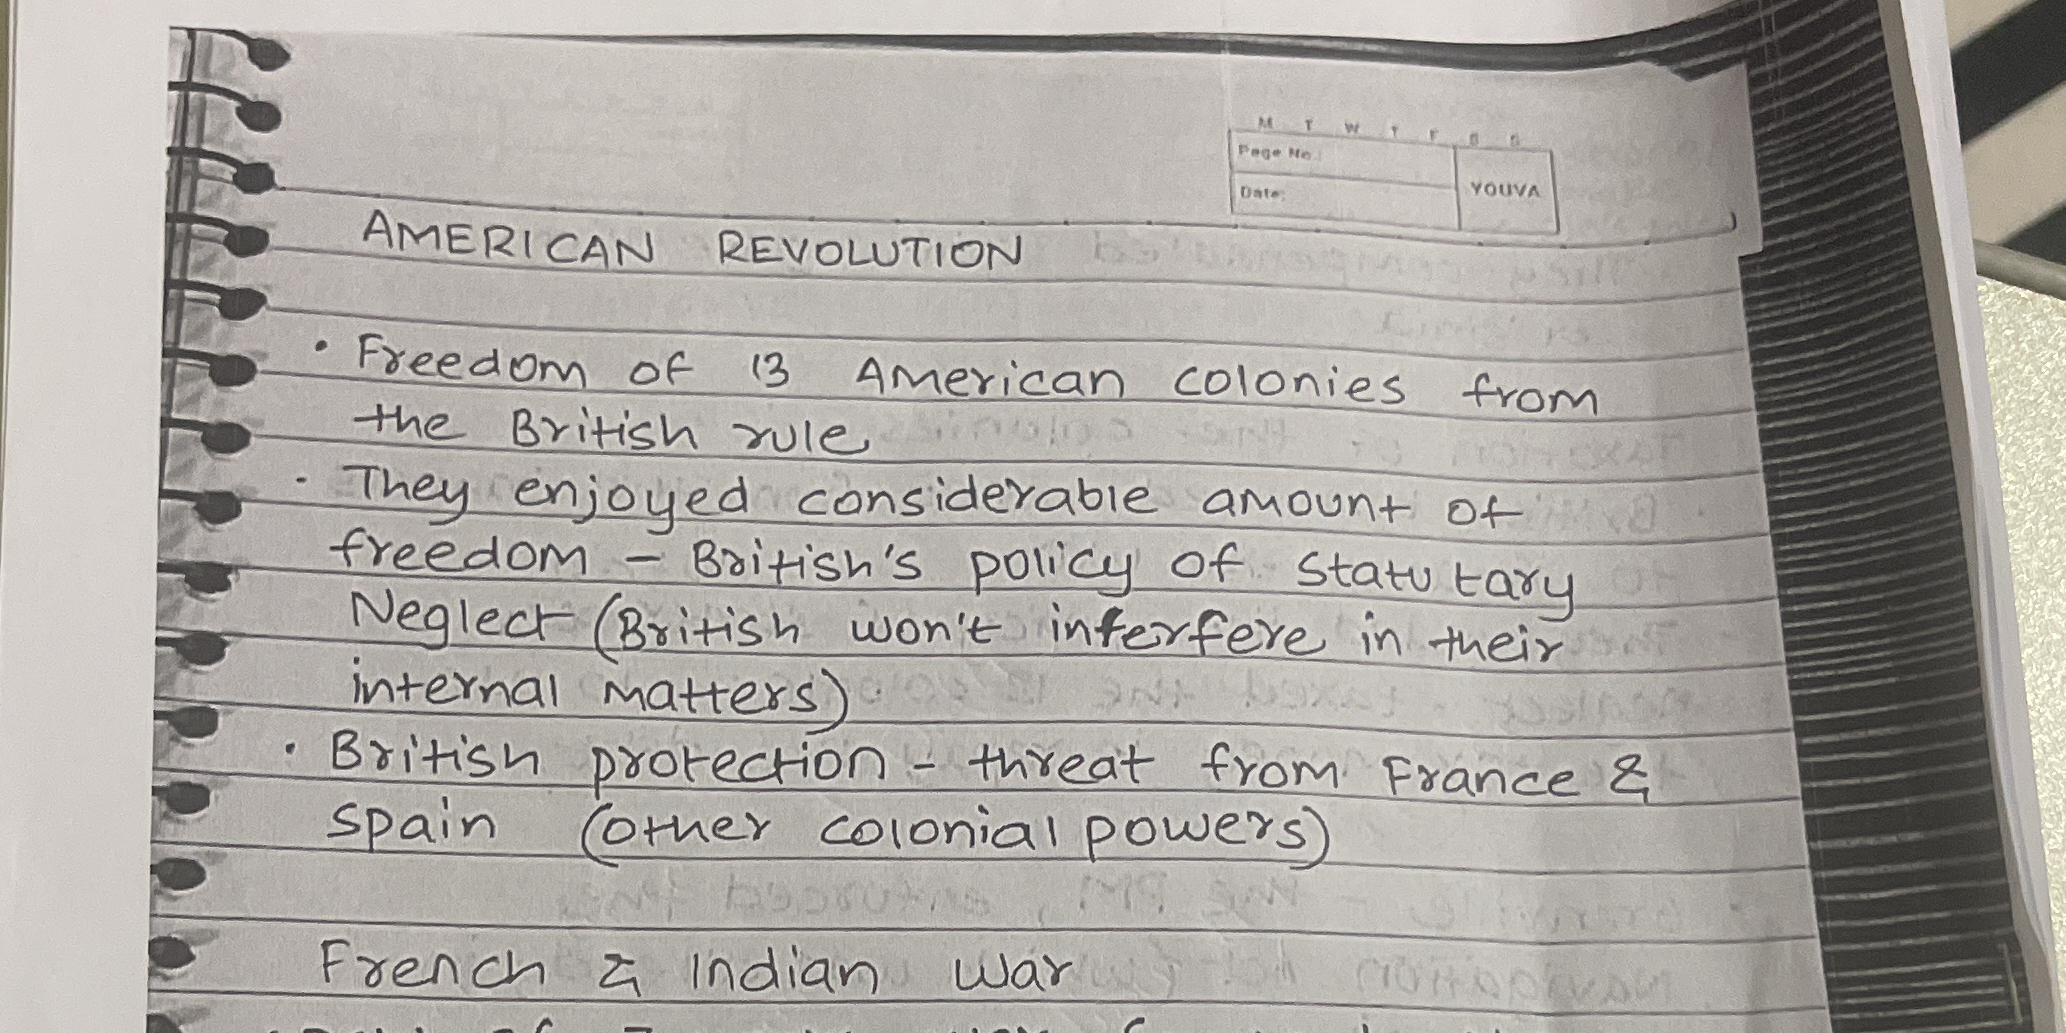 M T W T F S S
Page No.:
Date:
YOUVA
AMERICAN REVOLUTION
• Freedom of 13 American colonies from
the British rule
• They enjoyed considerable amount of
freedom - British's policy of statutary
Neglect (British won't interfere in their
internal matters).
• British protection - threat from France &
spain (other colonial powers)
French & Indian war